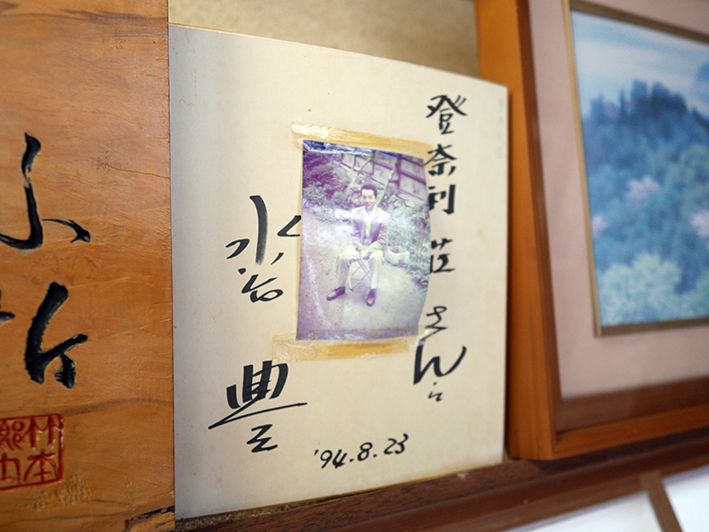 登奈利荘さんに
水谷豊
'94.8.23
竹本